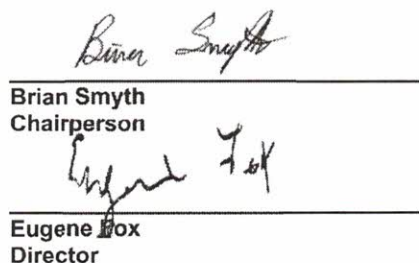 Brian Smyth
Brian Smyth
Chairperson
Eugene Fox
Eugene Fox
Director